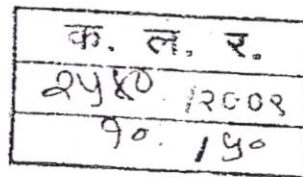 क. ल. र.
२५४० /२००९
१० / ५०